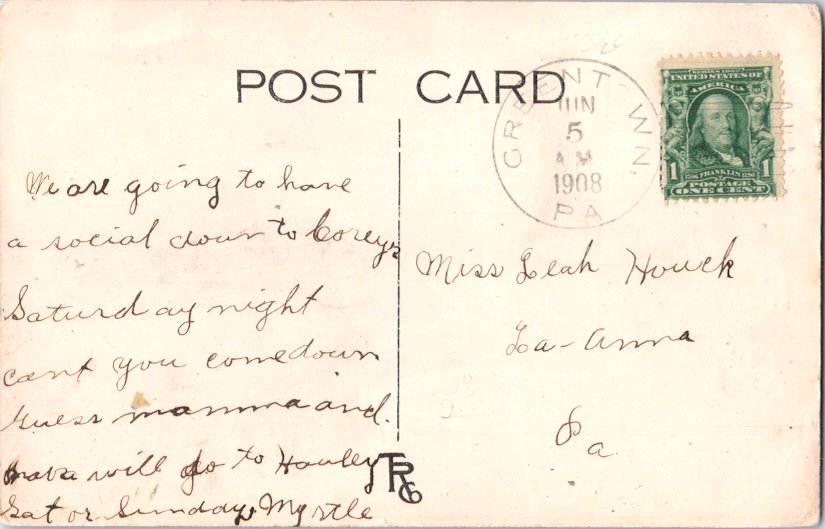 POST CARD
GREENTOWN,
JUN
5
A.M.
1908
PA
SERIES 1902
UNITED STATES OF
AMERICA
1 1
1706 FRANKLIN 1790
POSTAGE
ONE CENT
We are going to have
a social down to Coreys
Saturday night
cant you come down
Guess mamma and
will go to Hawley
Sat or Sunday, Myrtle
TRCo
Miss Leah Houck
La-Anna
Pa